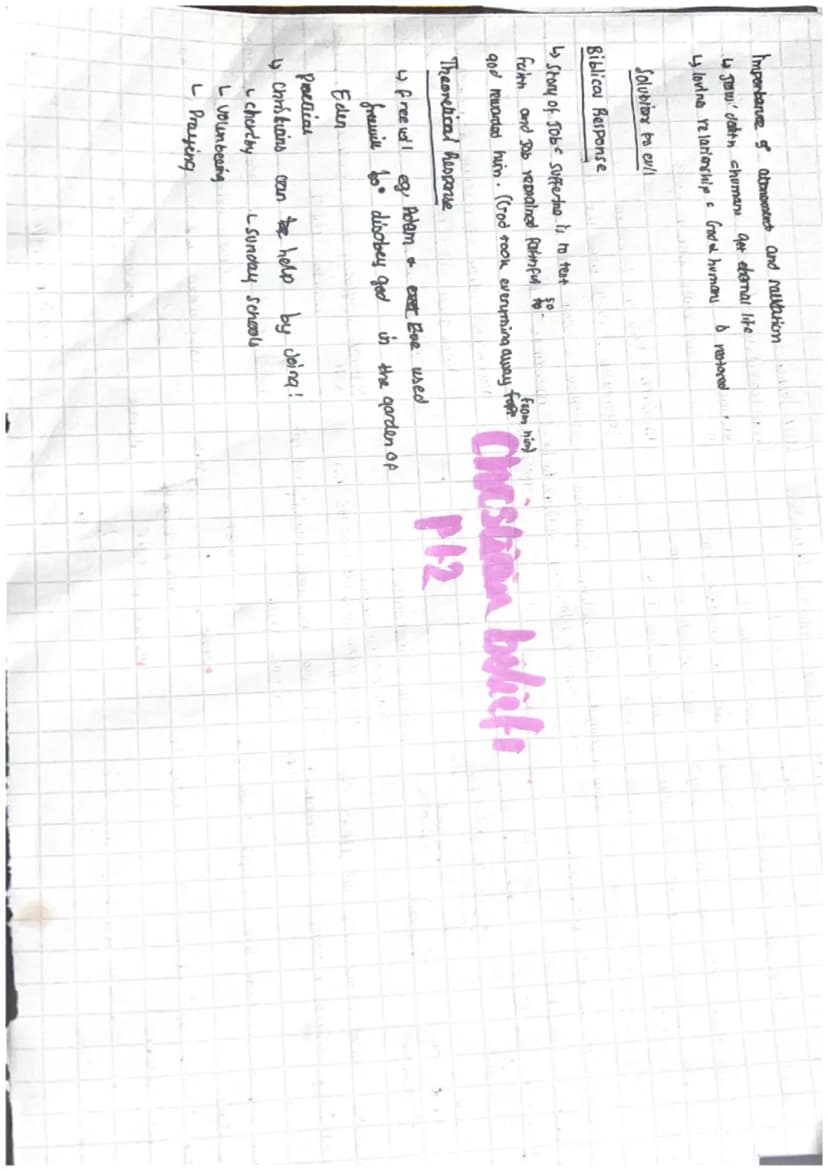 Importance of atonement and salvation
↳ Jesus' death = humans get eternal life
↳ loving relationship = God & humans is restored
Solutions to evil
Biblical Response
↳ Story of Job = suffering is to test
faith and Job remained faithful so
god rewarded him. (God took everything away from him)
Theoretical Response
↳ free will eg Adam & Eve used
freewill to disobey god in the garden of
Eden
Practical
↳ Christians can help by doing!
↳ charity ↳ sunday schools
↳ volunteering
↳ Praying
Christian beliefs
pt2